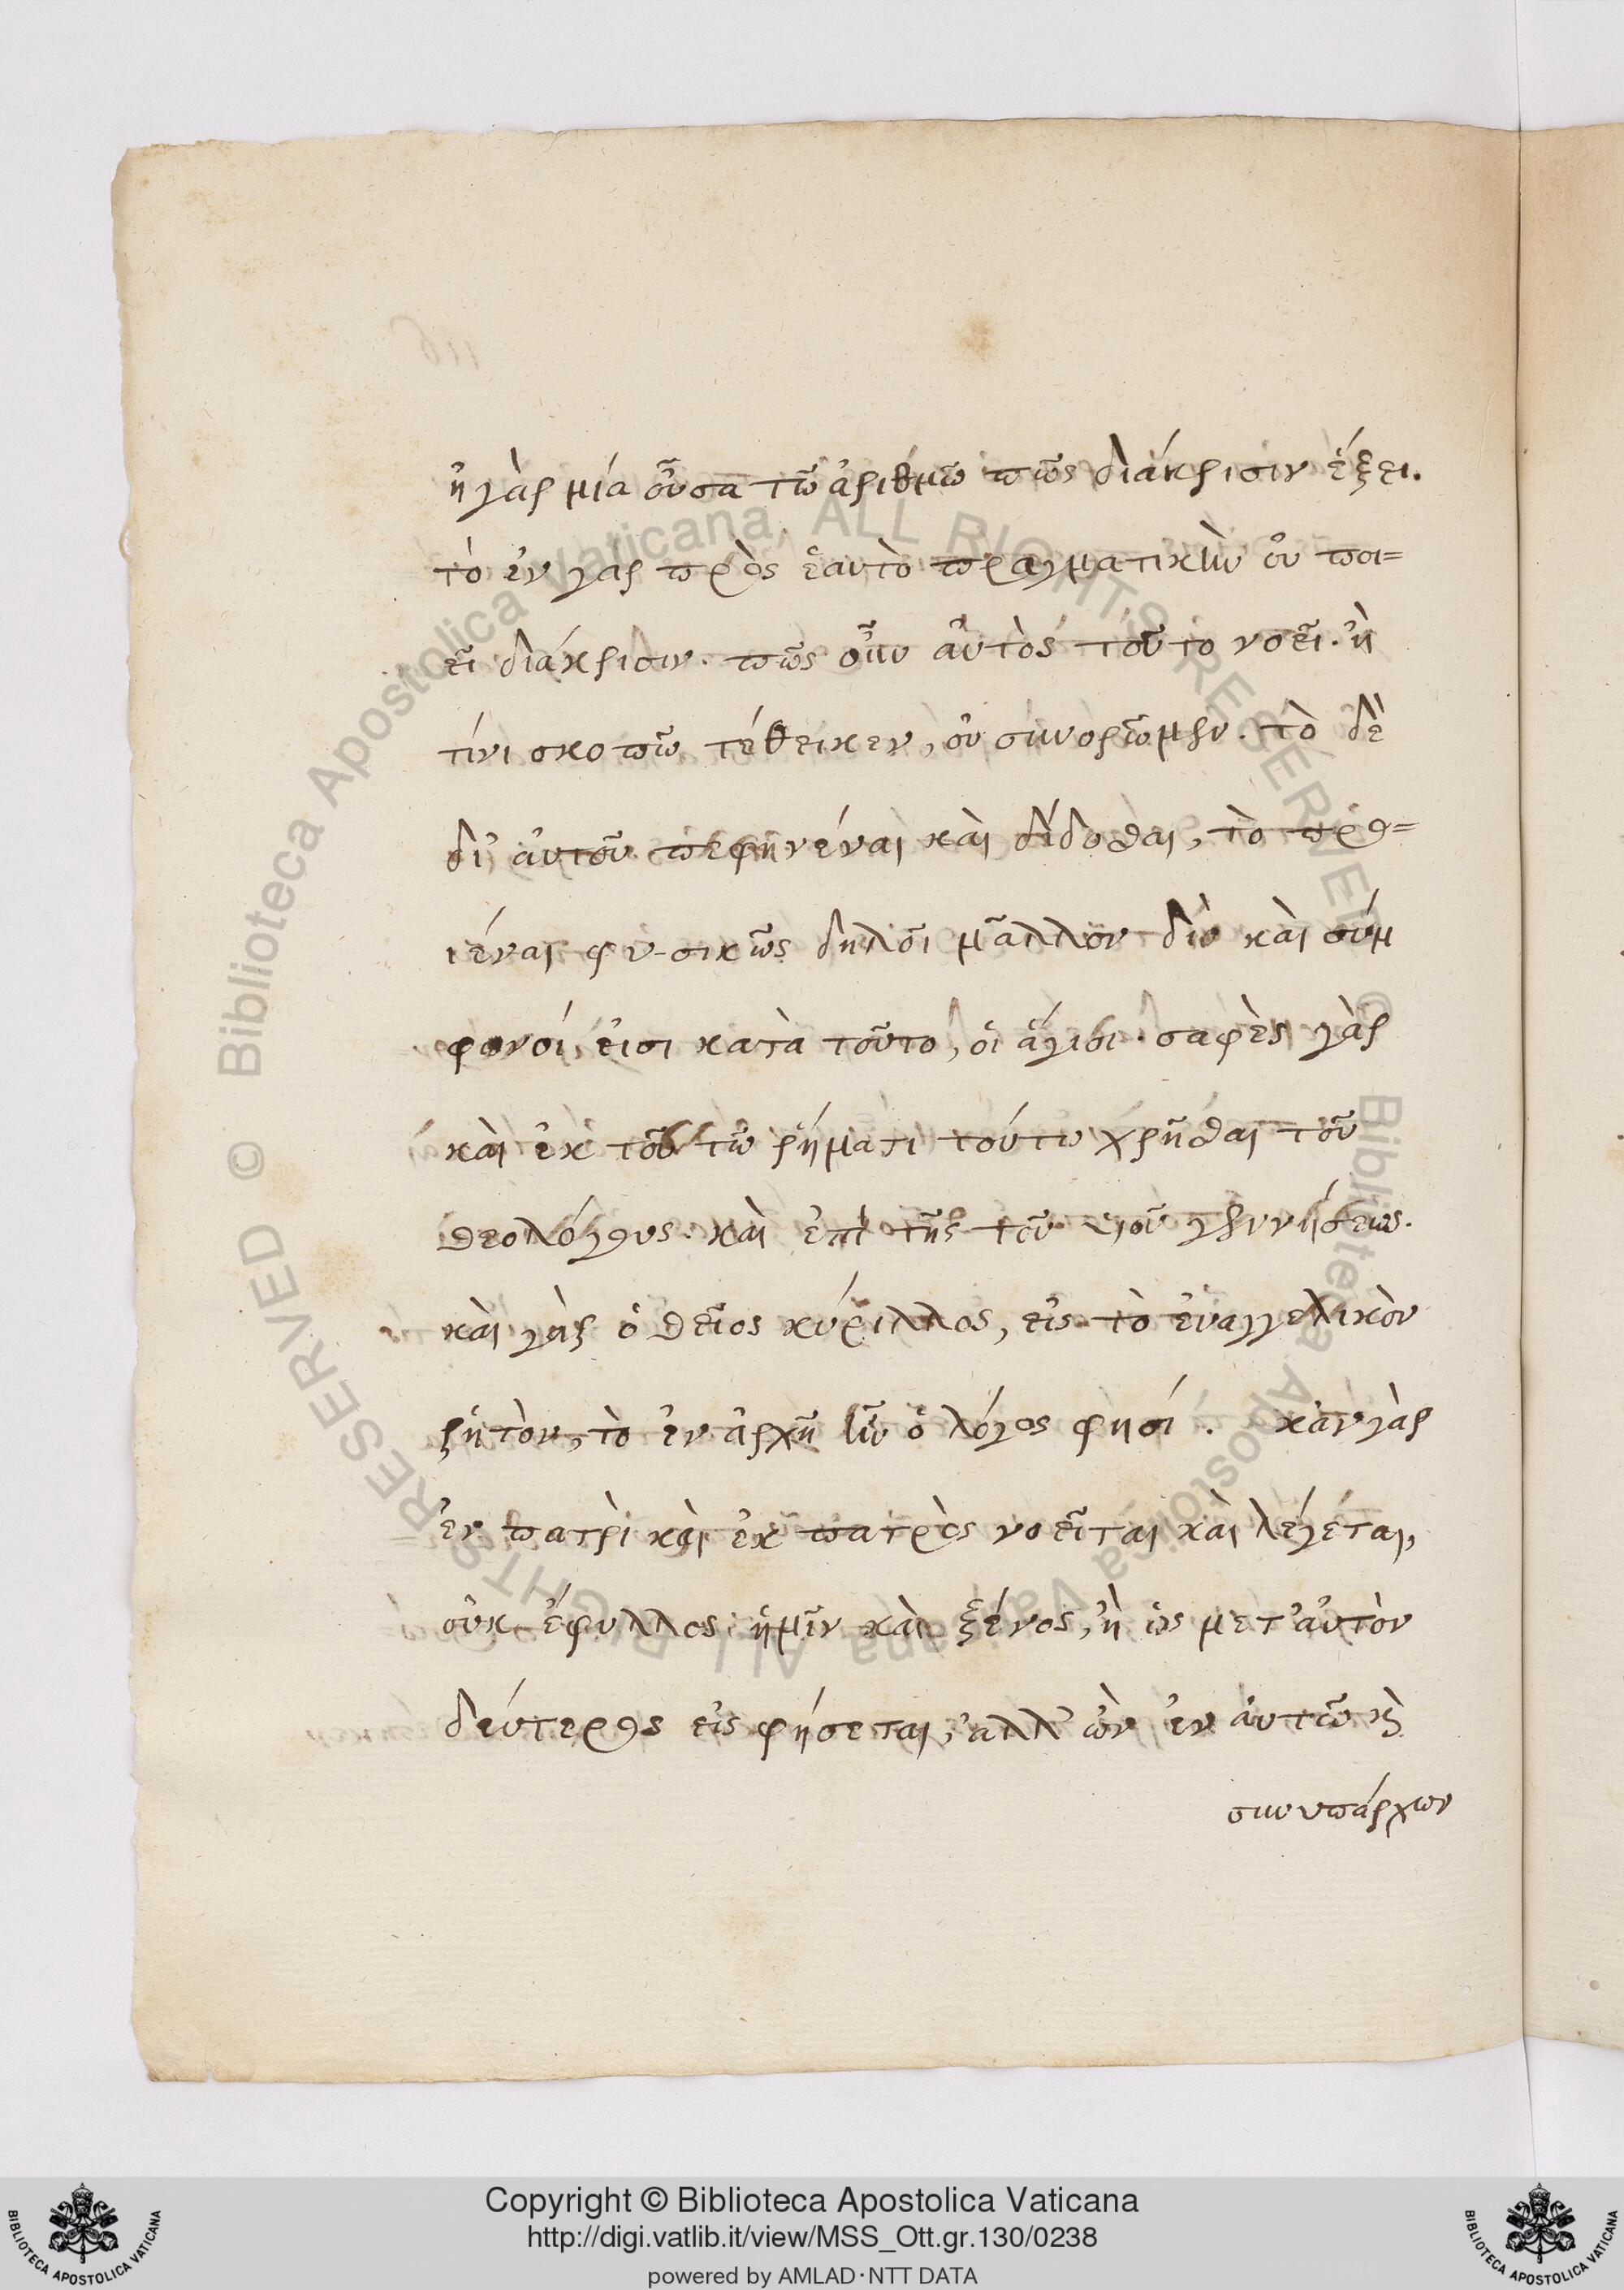 ἡ γὰρ μία οὖσα τῶ ἀριθμῶ πῶς διάκρισιν ἕξει.
τὸ ἐν γαρ πρὸς ἑαυτὸ πραγματικὴν οὐ ποι=
εῖ διάκρισιν. πῶς οὖν αὐτὸς τοῦτο νοεῖ. ἢ
τίνι σκοπῶ τέθεικεν, οὐ συνορῶμεν. τὸ δὲ
δι' αὐτοῦ πεφηνέναι καὶ δίδοσθαι, τὸ προ=
ιέναι φυσικῶς δηλοῖ μᾶλλον διὸ καὶ σύμ
φωνοί εἰσι κατὰ τοῦτο, οἱ ἅγιοι. σαφὲς γὰρ
καὶ ἐκ τοῦ τῶ ῥήματι τούτω χρῆσθαι τοῦ
θεολόγους. καὶ ἐπὶ τῆς τοῦ υἱοῦ γεννήσεως.
καὶ γὰρ ὁ θεῖος κύριλλος, εἰς τὸ ἐυαγγελικὸν
ῥητὸν, τὸ ἐν ἀρχῆ ἦν ὁ λόγος φησί. κἀν γὰρ
ἐν πατρὶ καὶ ἐκ πατρὸς νοεῖται καὶ λέγεται,
οὐκ ἔφυλλος ἡμῖν καὶ ξένος, ἢ ὡς μετ' αὐτὸν
δεύτερος εἰς φήσεται, ἀλλ' ὢν ἐν αὐτῶ κ̀
συνυπάρχων
© Biblioteca Apostolica Vaticana, ALL RIGHTS RESERVED
© Biblioteca Apostolica Vaticana ALL RIGHTS RESERVED
BIBLIOTECA APOSTOLICA VATICANA
Copyright © Biblioteca Apostolica Vaticana
http://digi.vatlib.it/view/MSS_Ott.gr.130/0238
powered by AMLAD·NTT DATA
BIBLIOTECA APOSTOLICA VATICANA